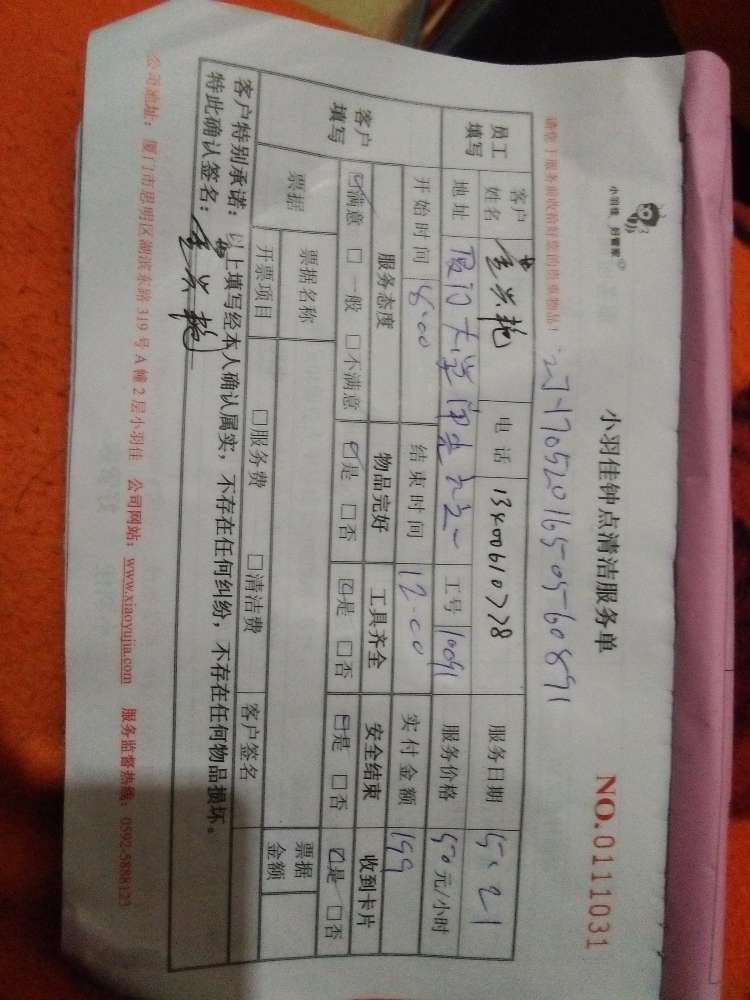 小羽佳 好管家
小羽佳钟点清洁服务单
NO.0111031
请您于服务前收拾好您的贵重物品!
员工填写
客户姓名
电话 13400610778
服务日期 5.21
地址 厦门大学
工号 10091
服务价格 50元/小时
开始时间 8:00
结束时间 12:00
实付金额 199
客户填写
服务态度 物品完好 工具齐全 安全结束 收到卡片
☑满意 □一般 □不满意 ☑是 □否 ☑是 □否 ☑是 □否 ☑是 □否
票据
票据名称
票据金额
开票项目 □服务费 □清洁费 客户签名
客户特别承诺:以上填写经本人确认属实,不存在任何纠纷,不存在任何物品损坏。
特此确认签名:
公司地址:厦门市思明区湖滨东路319号A幢2层小羽佳 公司网站:www.xiaoyujia.com 服务监督热线:0592-5888123